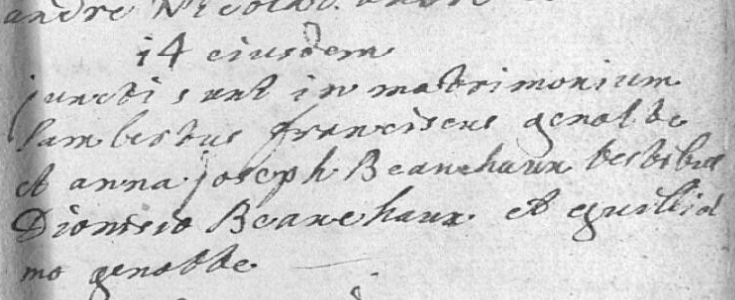 andre Nicolas andre
14 eiusdem
juncti sunt in matrimonium
lambertus franciscus genotte
et anna joseph Beauchaux testibus
Dionisio Beauchaux et guilliel
mo genotte